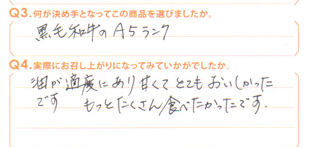 Q3.何が決め手となってこの商品を選びましたか。
黒毛和牛のA5ランク
Q4.実際にお召し上がりになってみていかがでしたか。
油が適度にあり甘くてとてもおいしかった
です もっとたくさん食べたかったです.